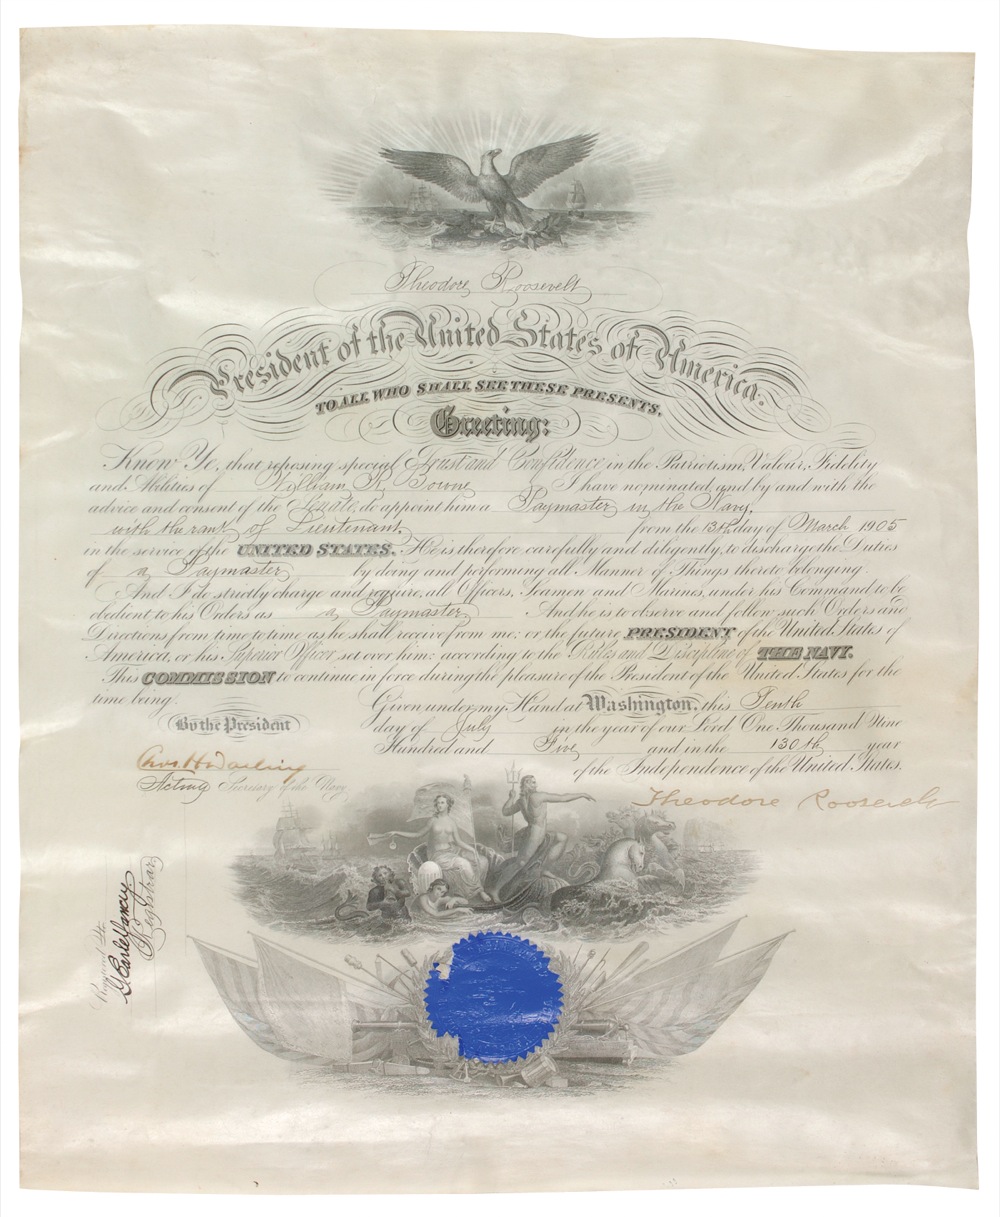 Theodore Roosevelt
President of the United States of America.
TO ALL WHO SHALL SEE THESE PRESENTS,
Greeting:
Know Ye, that reposing special Trust and Confidence in the Patriotism, Valour, Fidelity
and Abilities of William R. Bowne I have nominated, and by and with the
advice and consent of the Senate, do appoint him a Paymaster in the Navy,
with the rank of Lieutenant, from the 13th day of March 1905
in the service of the UNITED STATES. He is therefore carefully and diligently, to discharge the Duties
of a Paymaster by doing and performing all Manner of Things thereto belonging.
And I do strictly charge and require, all Officers, Seamen and Marines, under his Command to be
obedient to his Orders as a Paymaster. And he is to observe and follow such Orders and
Directions from time to time as he shall receive from me, or the future PRESIDENT of the United States of
America, or his Superior Officer set over him: according to the Rules and Discipline of THE NAVY.
This COMMISSION to continue in force during the pleasure of the President of the United States for the
time being.
Given under my Hand at Washington, this Tenth
day of July in the year of our Lord One Thousand Nine
Hundred and Five and in the 130th year
of the Independence of the United States.
By the President
Theodore Roosevelt
Chas. H. Darling
Acting Secretary of the Navy
Registrar